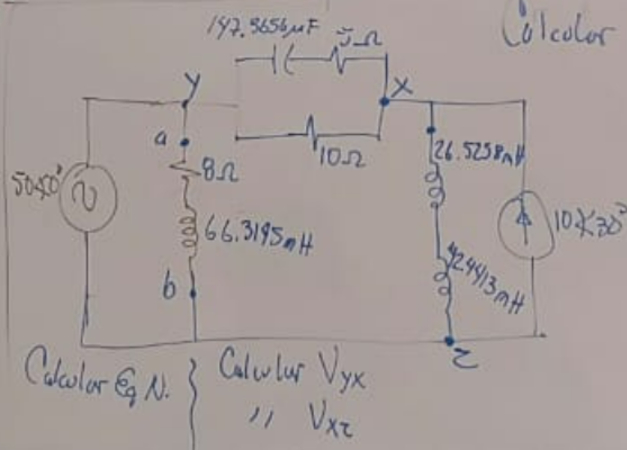 Calcular
147.3656µF 5Ω
Y
X
a
8Ω
10Ω
26.5258mH
66.3195mH
10∡30°
42.4413mH
b
Z
Calcular Eq N.
Calcular Vyx
" Vxz